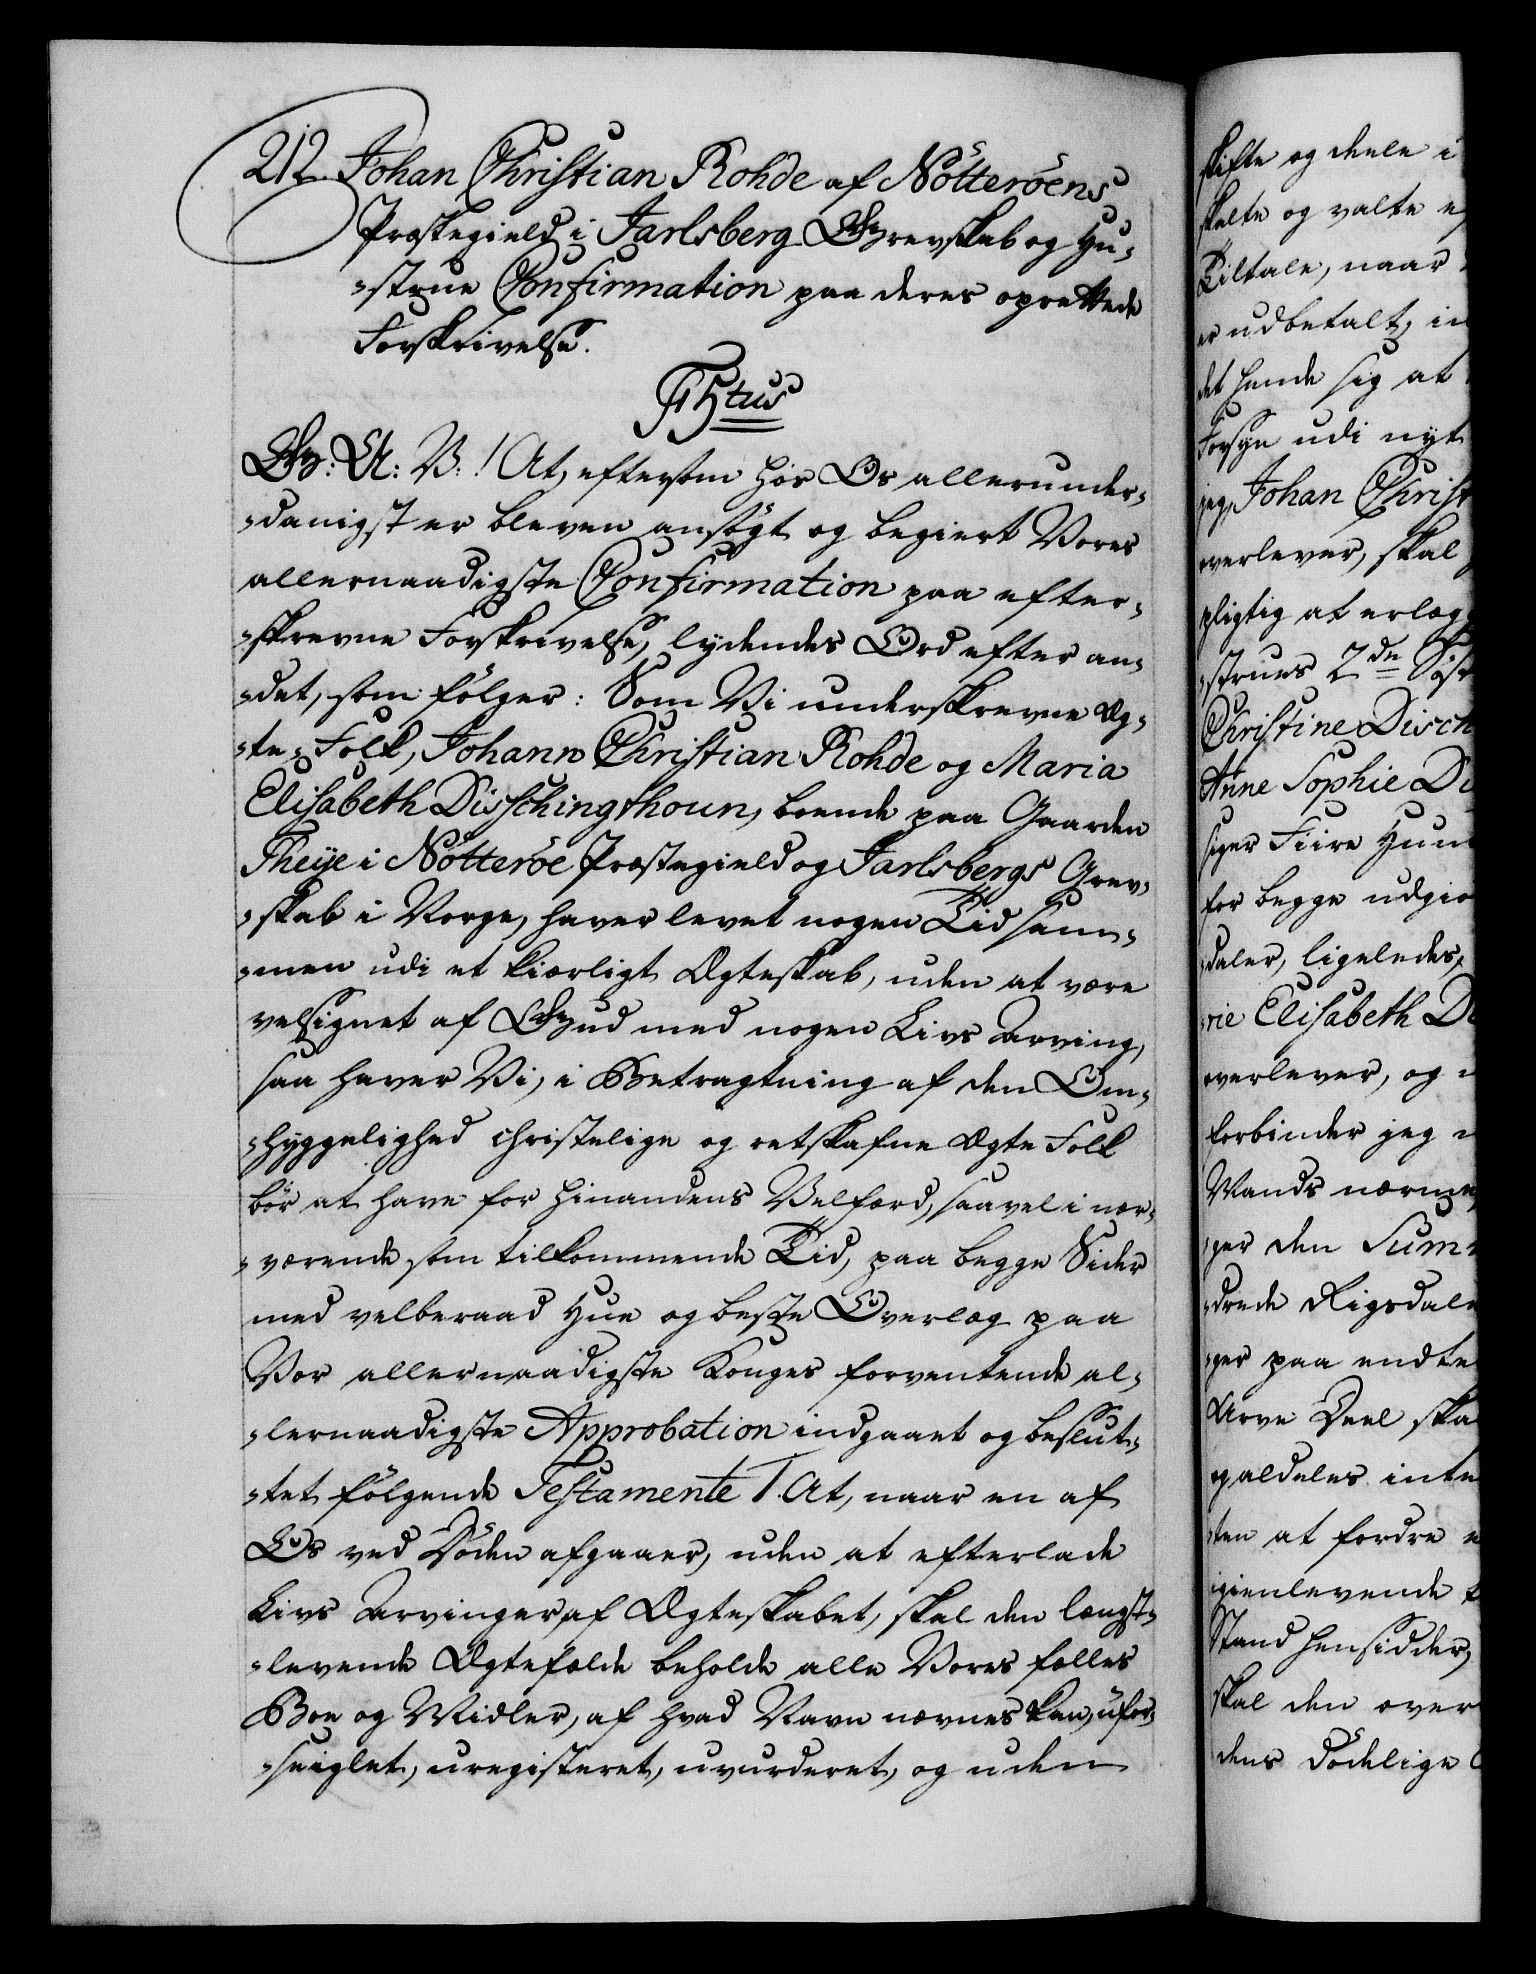 212. Johan Christian Rohde af Nötteröens
Præstegield i Jarlsberg Grevskab og Hu-
-strue Confirmation paa deres oprettede
Forskrivelse.
Gr: A: V: ! At, eftersom hos Os allerunder-
-danigst er bleven ansögt og begiert Vores
allernaadigste Confirmation paa efter-
-skrevne Forskrivelse, lydendes Ord efter an-
-det, som fölger: Som Vi underskrevne Æg-
-te-Folk, Johann Christian Rohde og Maria
Elisabeth Disschingthoun, boende paa Gaarden
Theÿe i Nötteröe Præstegield og Jarlsbergs Grev-
-skab i Norge, haver levet nogen Tid sam-
-men udi et kiærligt Ægteskab, uden at være
velsignet af Gud med nogen Livs Arving,
saa haver Vi, i Betragtning af den Om-
-hyggelighed christelige og retskafne Ægte Folk
bör at have for hinandens Velfærd, saavel i nær-
-værende som tilkommende Tid, paa begge Sider
med velberaad Hue og beste Overlæg paa
Vor allernaadigste Konges forventende al-
-lernaadigste Approbation indgaaet og beslut-
-tet fölgende Testamente 1. At, naar en af
Os ved Döden afgaaer, uden at efterlade
Livs Arvinger af Ægteskabet, skal den længst-
-levende Ægtefælde beholde alle Vores fælles
Boe og Midler, af hvad Navn nævnes kan, ufor-
-seiglet, uregisteret, uvurderet, og uden
skifte og deele i
skalte og valte
Tiltale, naar
er udbetalt, in
det hende sig at
Forsyn udi nyt
jeg, Johan Christ
overlever, skal
pligtig at erlæg
-strues 2de Söst
Christine Disch
Anne Sophie Di
siger Fiire Hun
for begge udgiö
-daler, ligeledes,
-rie Elisabeth Di
overlever, og
forbinder jeg
Mands nærme
-ger den Sum
-drede Rigsdale
-ger paa endte
Arve Deel ska
og aldeles inte
-ten at fordre
igienlevende
Stand hensidder,
skal den over
dens Dödelige